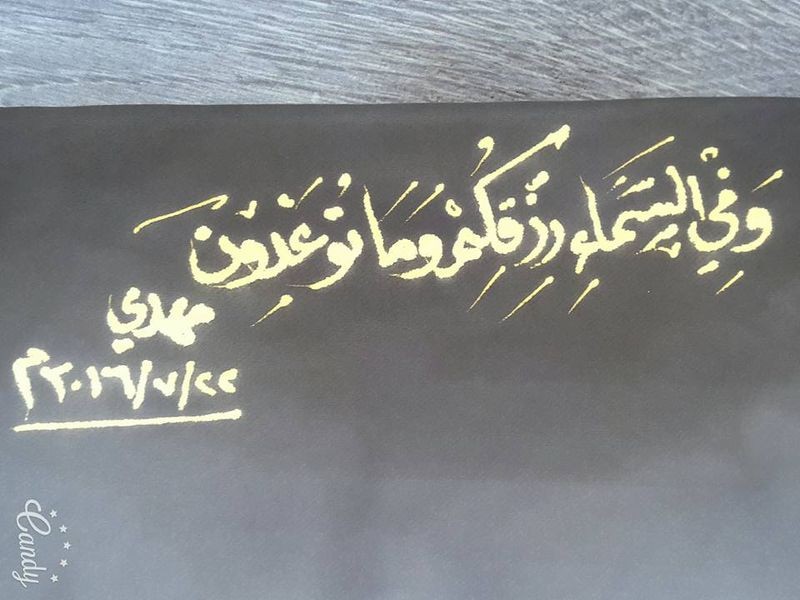 وَفِي السَّمَاءِ رِزْقُكُمْ وَمَا تُوعَدُونَ
مهدي
٢٠١٦/٧/٢٢م
Candy